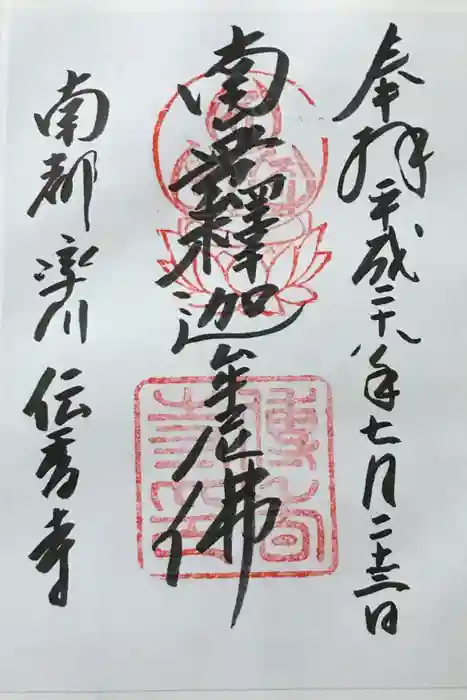 奉拝 平成二十八年七月二十三日
南無釋迦牟尼佛
南都 率川 伝香寺